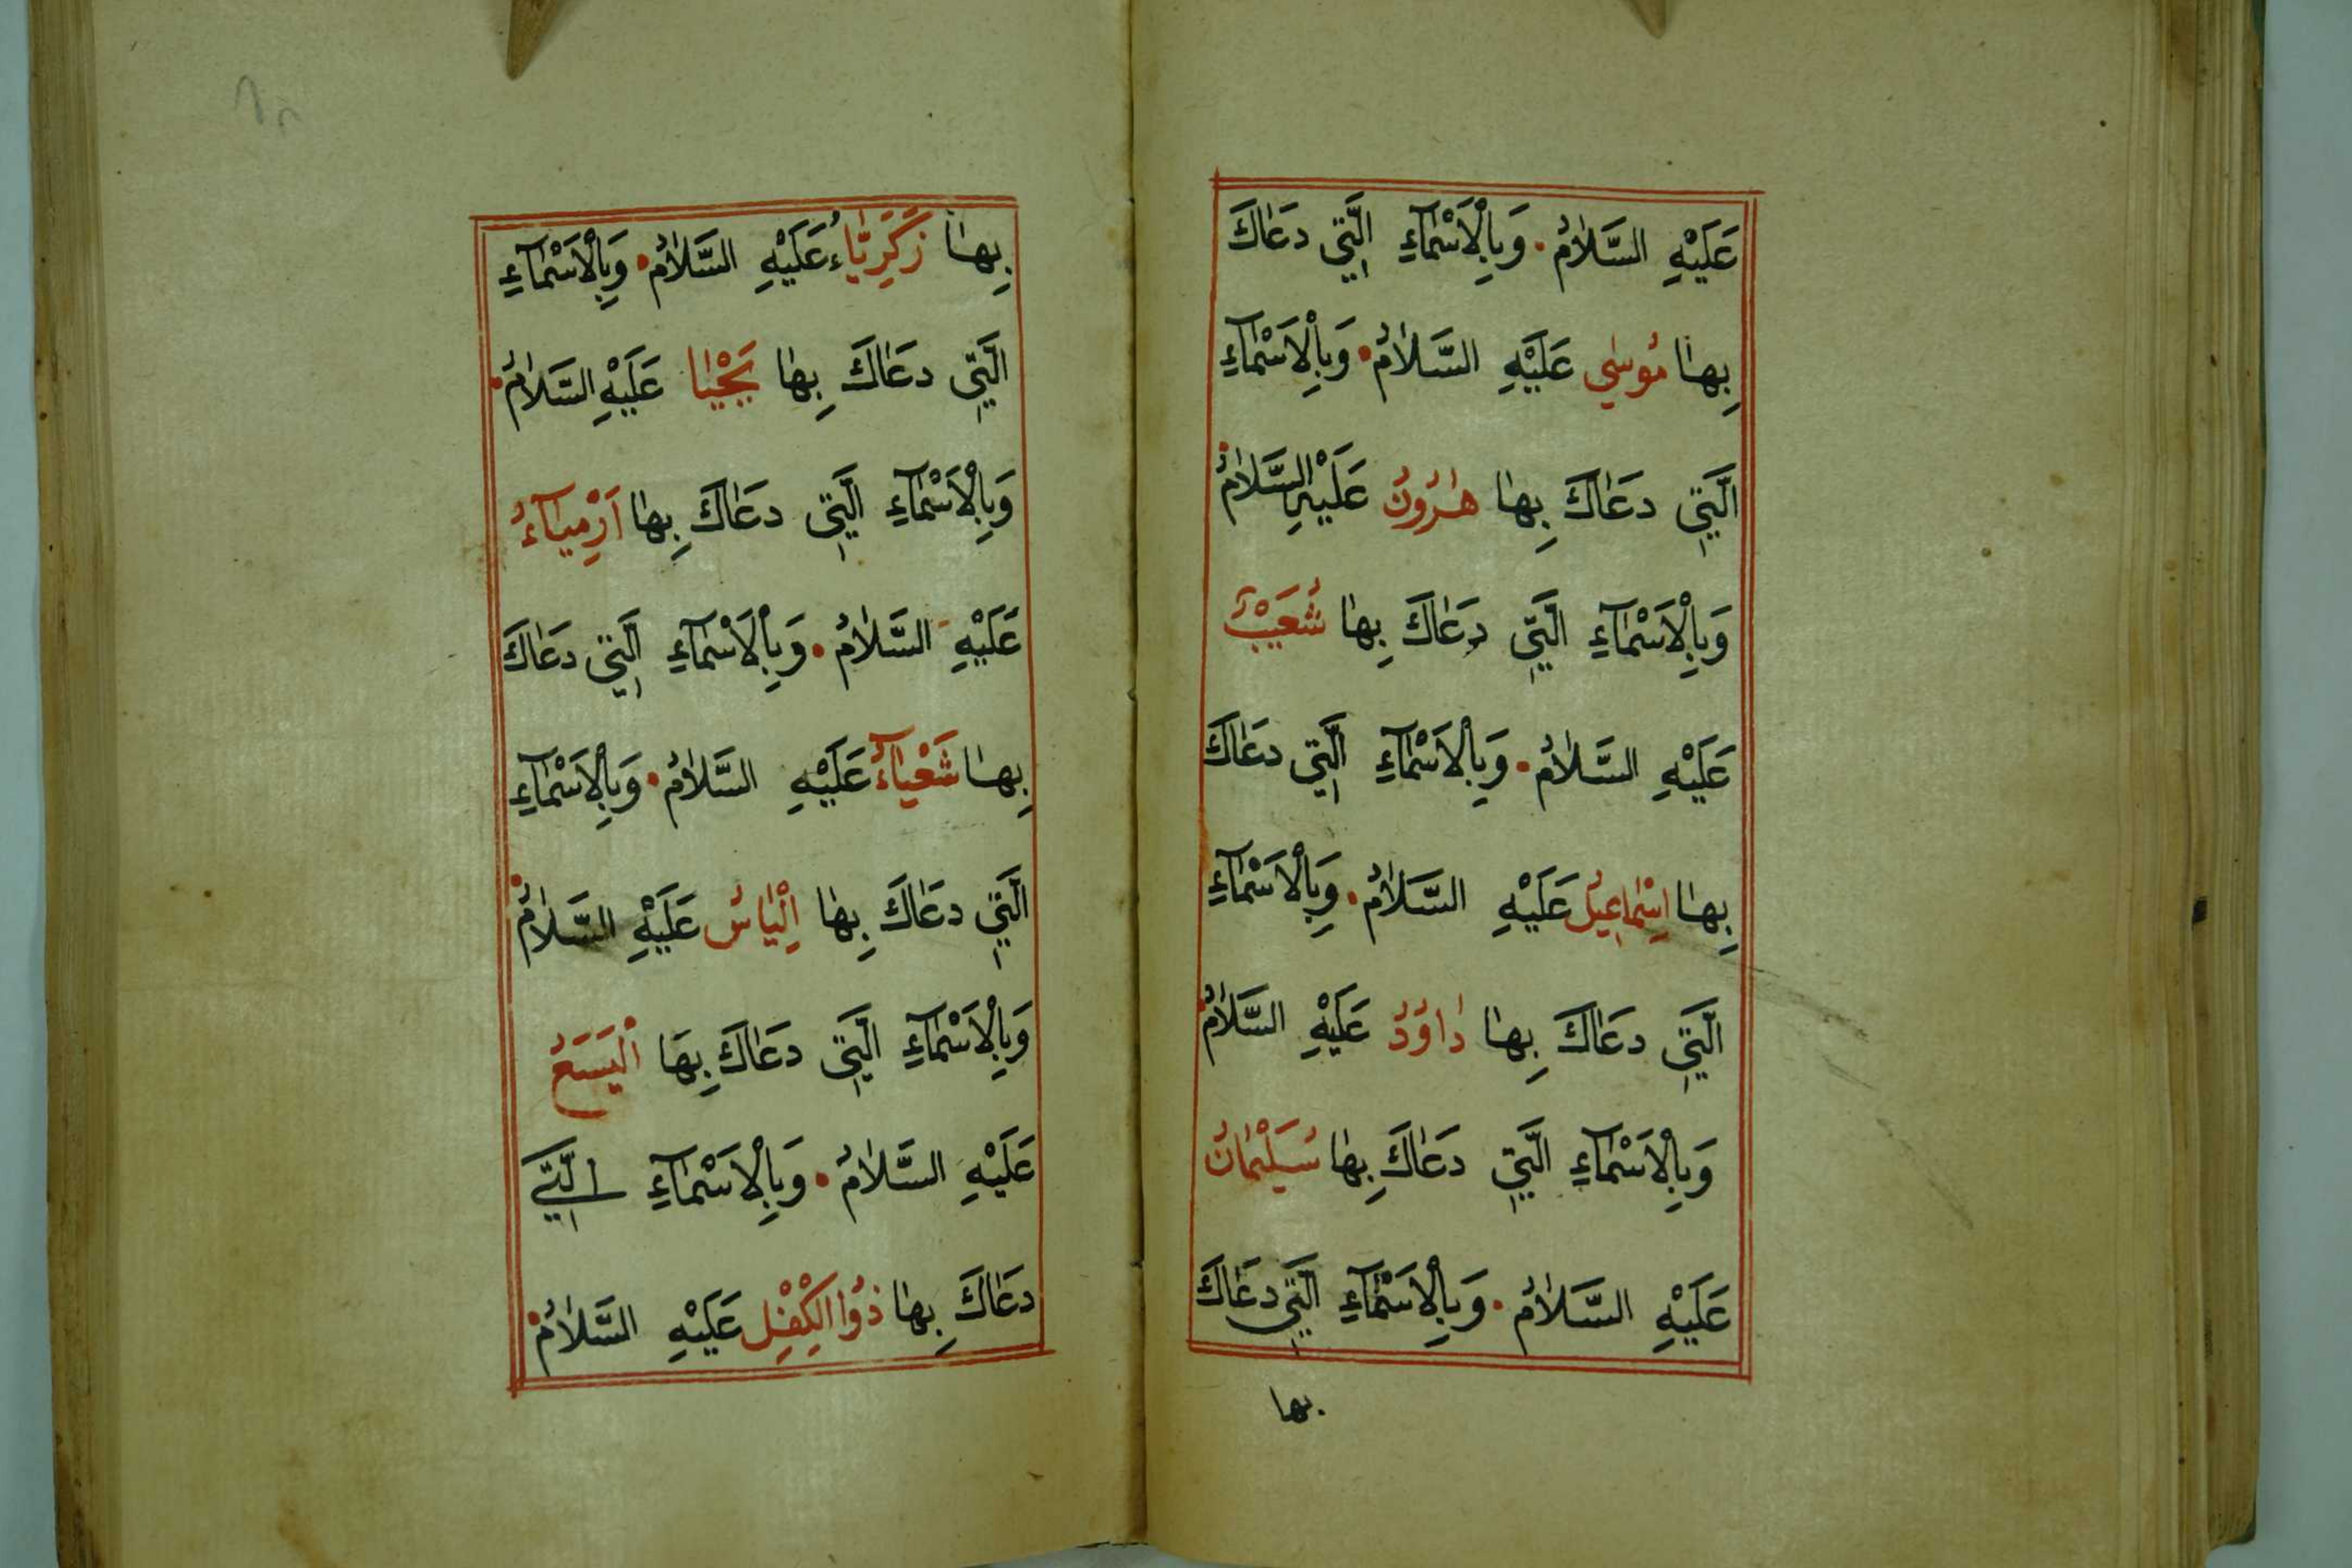 عَلَيْهِ السَّلَامُ. وَبِالْاَسْمَآءِ الَّتِي دَعَاكَ
بِهَا مُوسٰي عَلَيْهِ السَّلَامُ. وَبِالْاَسْمَآءِ
الَّتِي دَعَاكَ بِهَا هٰرُونُ عَلَيْهِ السَّلَامُ.
وَبِالْاَسْمَآءِ الَّتِي دَعَاكَ بِهَا شُعَيْبُ
عَلَيْهِ السَّلَامُ. وَبِالْاَسْمَآءِ الَّتِي دَعَاكَ
بِهَا اِسْمَاعِيلُ عَلَيْهِ السَّلَامُ. وَبِالْاَسْمَآءِ
الَّتِي دَعَاكَ بِهَا دَاوُدُ عَلَيْهِ السَّلَامُ.
وَبِالْاَسْمَآءِ الَّتِي دَعَاكَ بِهَا سُلَيْمَانُ
عَلَيْهِ السَّلَامُ. وَبِالْاَسْمَآءِ الَّتِي دَعَاكَ
بها
بِهَا زَكَرِيَّاءُ عَلَيْهِ السَّلَامُ. وَبِالْاَسْمَآءِ
الَّتِي دَعَاكَ بِهَا يَحْيٰا عَلَيْهِ السَّلَامُ.
وَبِالْاَسْمَآءِ الَّتِي دَعَاكَ بِهَا اَرْمِيَآءُ
عَلَيْهِ السَّلَامُ. وَبِالْاَسْمَآءِ الَّتِي دَعَاكَ
بِهَا شَعْيَآءُ عَلَيْهِ السَّلَامُ. وَبِالْاَسْمَآءِ
الَّتِي دَعَاكَ بِهَا اِلْيَاسُ عَلَيْهِ السَّلَامُ.
وَبِالْاَسْمَآءِ الَّتِي دَعَاكَ بِهَا الْيَسَعُ
عَلَيْهِ السَّلَامُ. وَبِالْاَسْمَآءِ الَّتِي
دَعَاكَ بِهَا ذُوا الْكِفْلِ عَلَيْهِ السَّلَامُ.